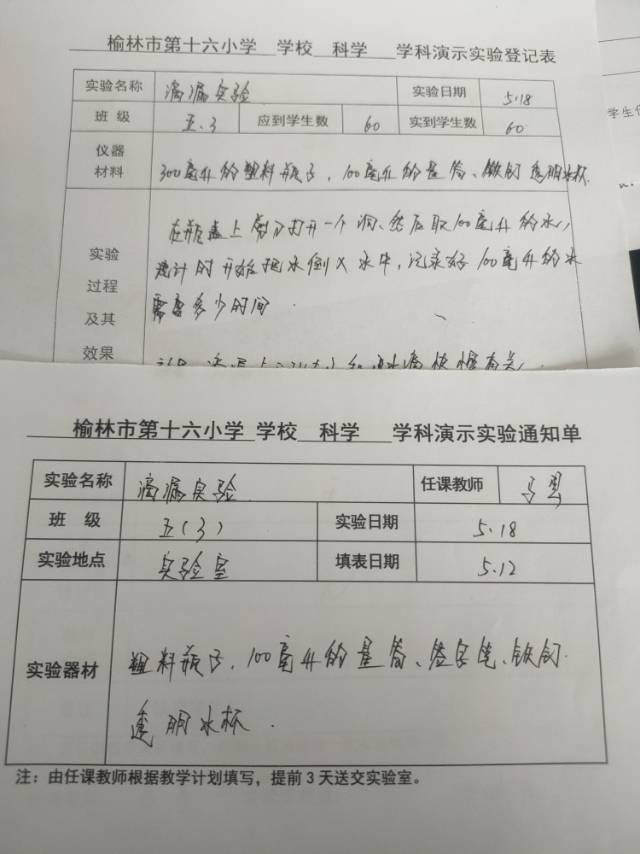 榆林市第十六小学 学校 科学 学科演示实验登记表
实验名称 滴漏实验 实验日期 5.18
班 级 五.3 应到学生数 60 实到学生数 60
仪器
材料 300毫升的塑料瓶子,100毫升的量筒、铁钉 透明水杯
在瓶盖上 打开一个洞、然后取100毫升的水,
计时开始把水倒入 中,记录好100毫升的水
需要多少时间.
实验
过程
及其
效果
学生
榆林市第十六小学 学校 科学 学科演示实验通知单
实验名称 滴漏实验 任课教师 马
班 级 五(3) 实验日期 5.18
实验地点 实验室 填表日期 5.12
实验器材 塑料瓶子.100毫升的量筒、签字笔、铁钉.
透明水杯.
注:由任课教师根据教学计划填写,提前3天送交实验室。